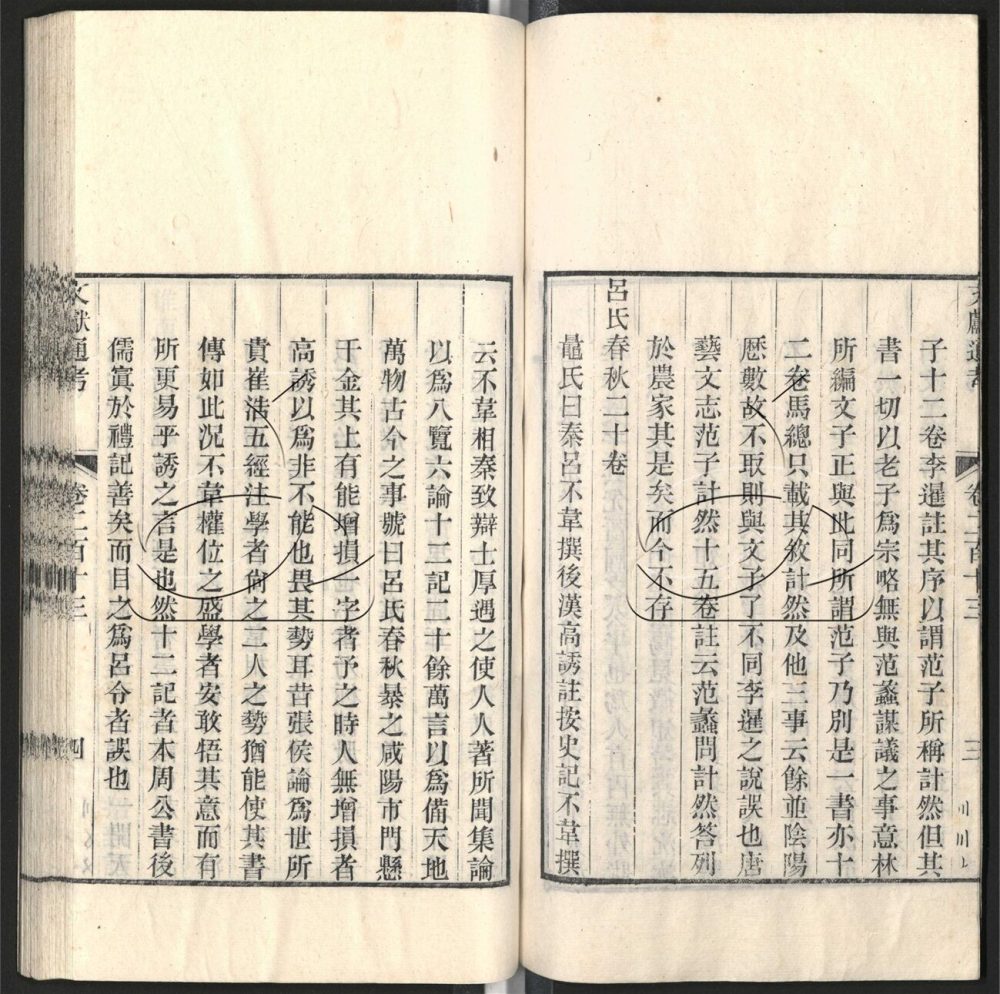 文獻通考 卷二百十三 三
子十二卷李暹註其序以謂范子所稱計然但其
書一切以老子爲宗略無與范蠡謀議之事意林
所編文子正與此同所謂范子乃別是一書亦十
二卷馬總只載其敘計然及他三事云餘並陰陽
歷數故不取則與文子了不同李暹之說誤也唐
藝文志范子計然十五卷註云范蠡問計然答列
於農家其是矣而今不存
呂氏春秋二十卷
鼂氏曰秦呂不韋撰後漢高誘註按史記不韋撰
云不韋相秦致辯士厚遇之使人人著所聞集論
以爲八覽六論十二記二十餘萬言以爲備天地
萬物古今之事號曰呂氏春秋暴之咸陽市門懸
千金其上有能增損一字者予之時人無增損者
高誘以爲非不能也畏其勢耳昔張侯論爲世所
貴崔浩五經注學者尙之二人之勢猶能使其書
傳如此況不韋權位之盛學者安敢牾其意而有
所更易乎誘之言是也然十二記者本周公書後
儒寘於禮記善矣而目之爲呂令者誤也
文獻通考 卷二百十三 四